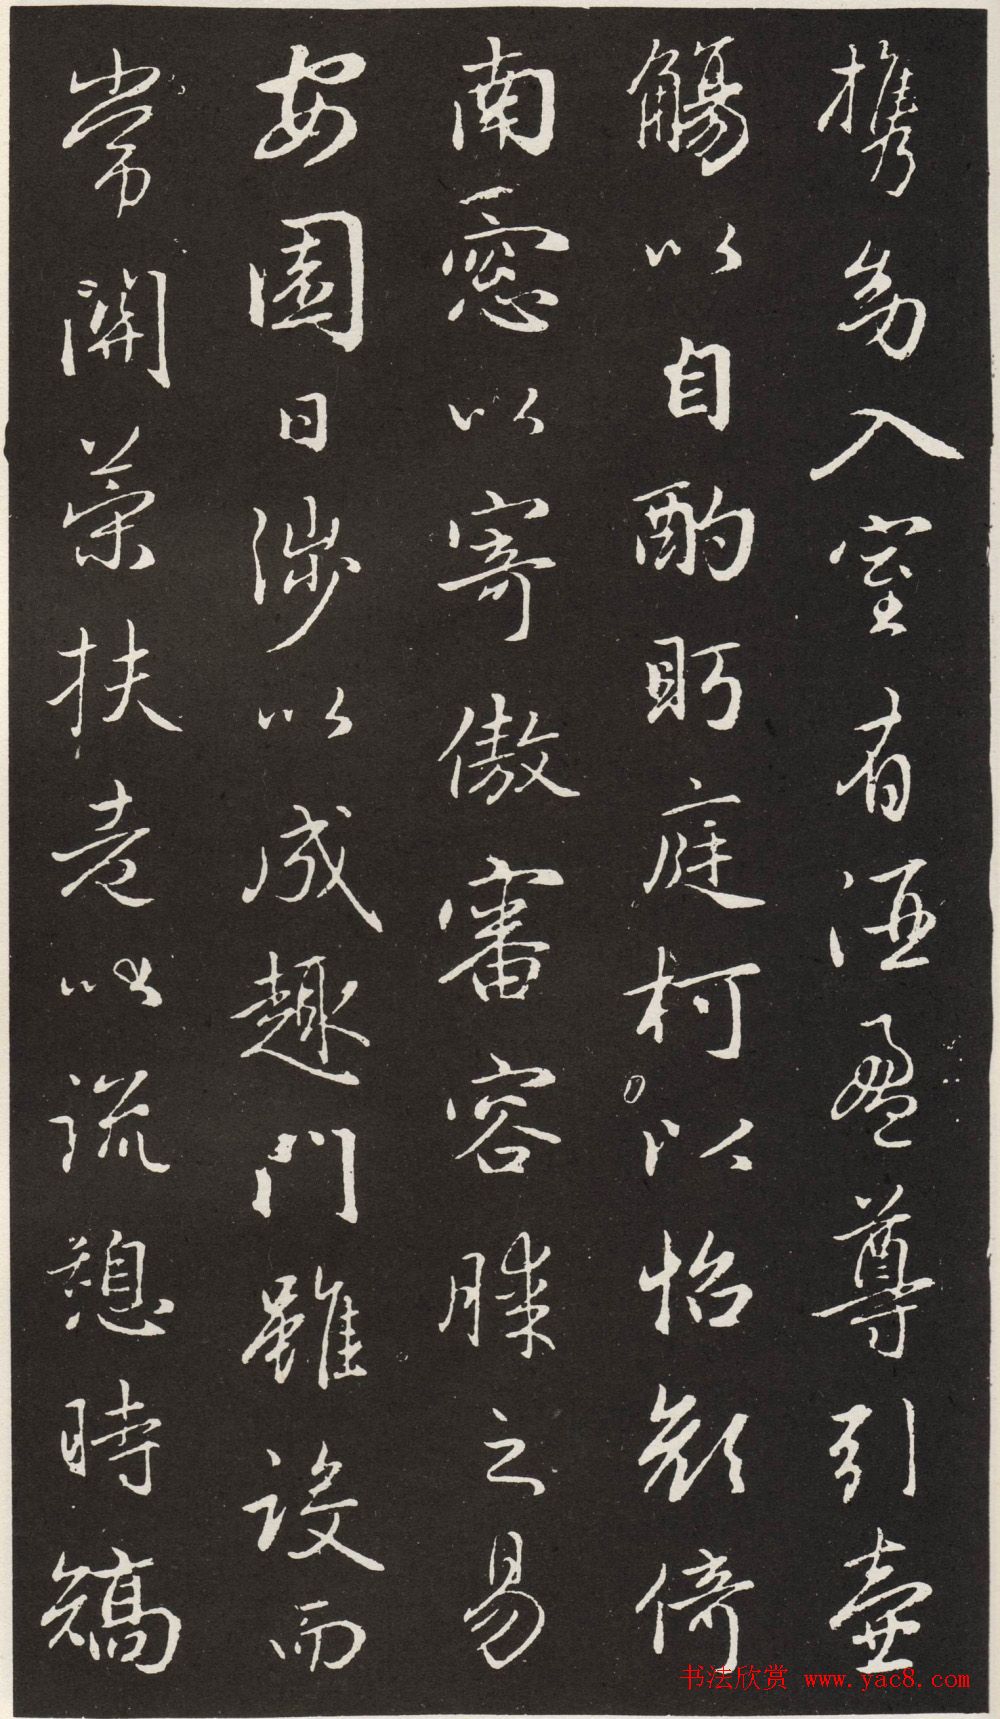 携幼入室有酒盈尊引壺
觴以自酌眄庭柯以怡顏倚
南窻以寄傲審容膝之易
安園日涉以成趣門雖設而
常關策扶老以流憩時矯
书法欣赏 www.yac8.com